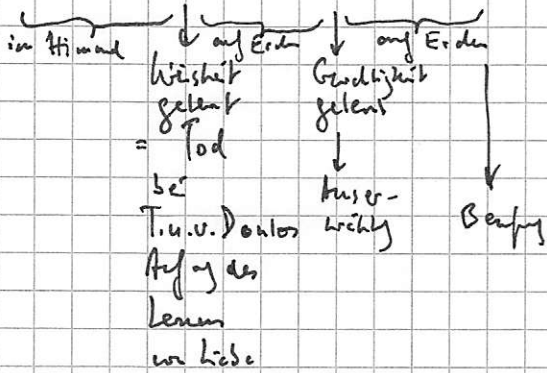 im Himmel
auf Erden
auf Erden
Weisheit
gelernt
= Tod
bei
T.u.v. Doulos
Anfang des
Lernens
von Liebe
Gerechtigkeit
gelernt
Auser-
wählg
Berufung